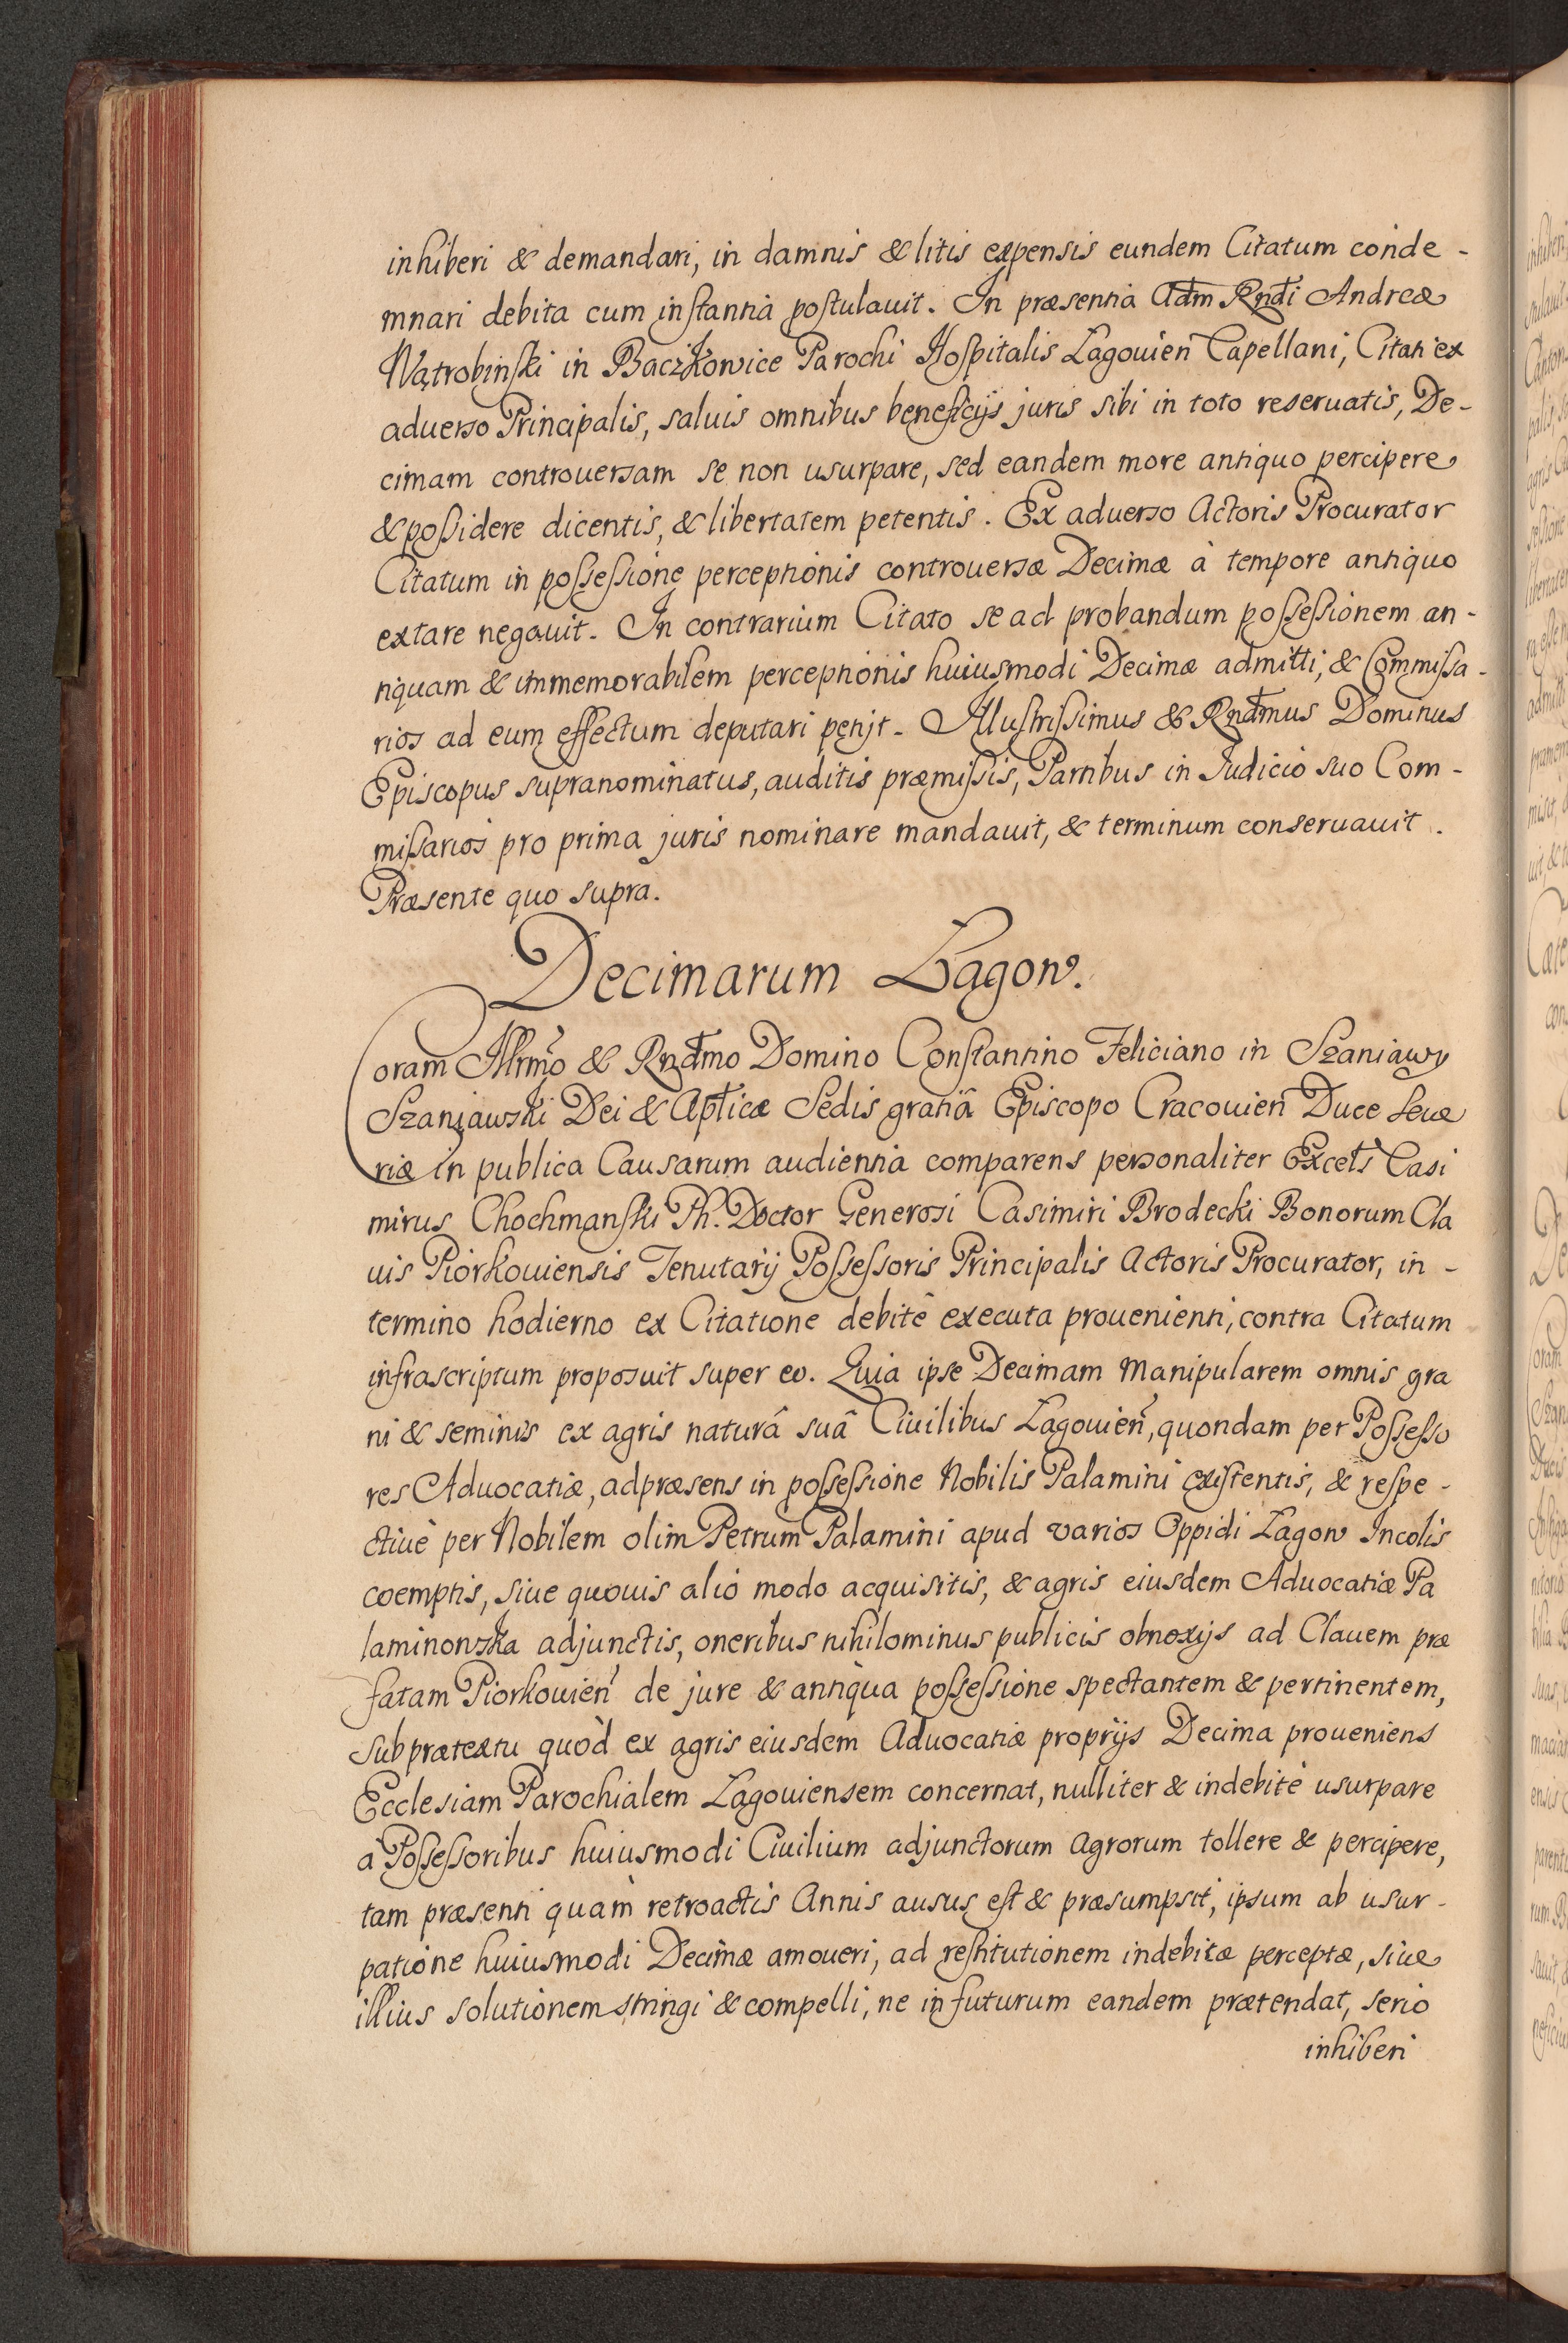 inhiberi & demandari, in damnis & litis expensis eundem Citatum conde-
mnari debita cum instantia postulauit. In præsentia Adm Rndi Andreæ
Wątrobinski in Baczkowice Parochi Hospitalis Lagouien Capellani, Citati ex
aduerso Principalis, saluis omnibus beneficijs juris sibi in toto reseruatis, De-
cimam controuersam se non usurpare, sed eandem more antiquo percipere
& possidere dicentis, & libertatem petentis. Ex aduerso Actoris Procurator
Citatum in possessione perceptionis controuersæ Decimæ à tempore antiquo
extare negauit. In contrarium Citato se ad probandum possessionem an-
tiquam & immemorabilem perceptionis huiusmodi Decimæ admitti, & Commissa-
rios ad eum effectum deputari petijt. Illustrissimus & Rndmus Dominus
Episcopus supranominatus, auditis præmissis, Partibus in Judicio suo Com-
missarios pro prima juris nominare mandauit, & terminum conseruauit.
Præsente quo supra.
Decimarum Lagow.
Coram Illrmo & Rndmo Domino Constantino Feliciano in Szaniawy
Szaniawski Dei & Aplicæ Sedis gratiâ Episcopo Cracouien Duce Seue
riæ in publica Causarum audientia comparens personaliter Excels Casi
mirus Chochmanski Ph. Doctor Generosi Casimiri Brodecki Bonorum Cla
uis Piorkouiensis Tenutarij Possessoris Principalis Actoris Procurator, in-
termino hodierno ex Citatione debitè executa prouenienti, contra Citatum
infrascriptum proposuit super eo. Quia ipse Decimam Manipularem omnis gra
ni & seminis ex agris naturâ suâ Ciuilibus Lagouien, quondam per Possesso
res Aduocatiæ, adpræsens in possessione Nobilis Palamini existentis, & respe-
ctiuè per Nobilem olim Petrum Palamini apud varios Oppidi Lagow Incolis
coemptis, siue quouis alio modo acquisitis, & agris eiusdem Aduocatiæ Pa
laminowska adjunctis, oneribus nihilominus publicis obnoxijs ad Clauem præ
fatam Piorkouien de jure & antiqua possessione spectantem & pertinentem,
sub prætextu quòd ex agris eiusdem Aduocatiæ proprijs Decima proueniens
Ecclesiam Parochialem Lagouiensem concernat, nulliter & indebitè usurpare
à Possessoribus huiusmodi Ciuilium adjunctorum agrorum tollere & percipere,
tam præsenti quàm retroactis Annis ausus est & præsumpsit, ipsum ab usur-
patione huiusmodi Decimæ amoueri, ad restitutionem indebitæ perceptæ, siue
illius solutionem stringi & compelli, ne in futurum eandem prætendat, serio
inhiberi